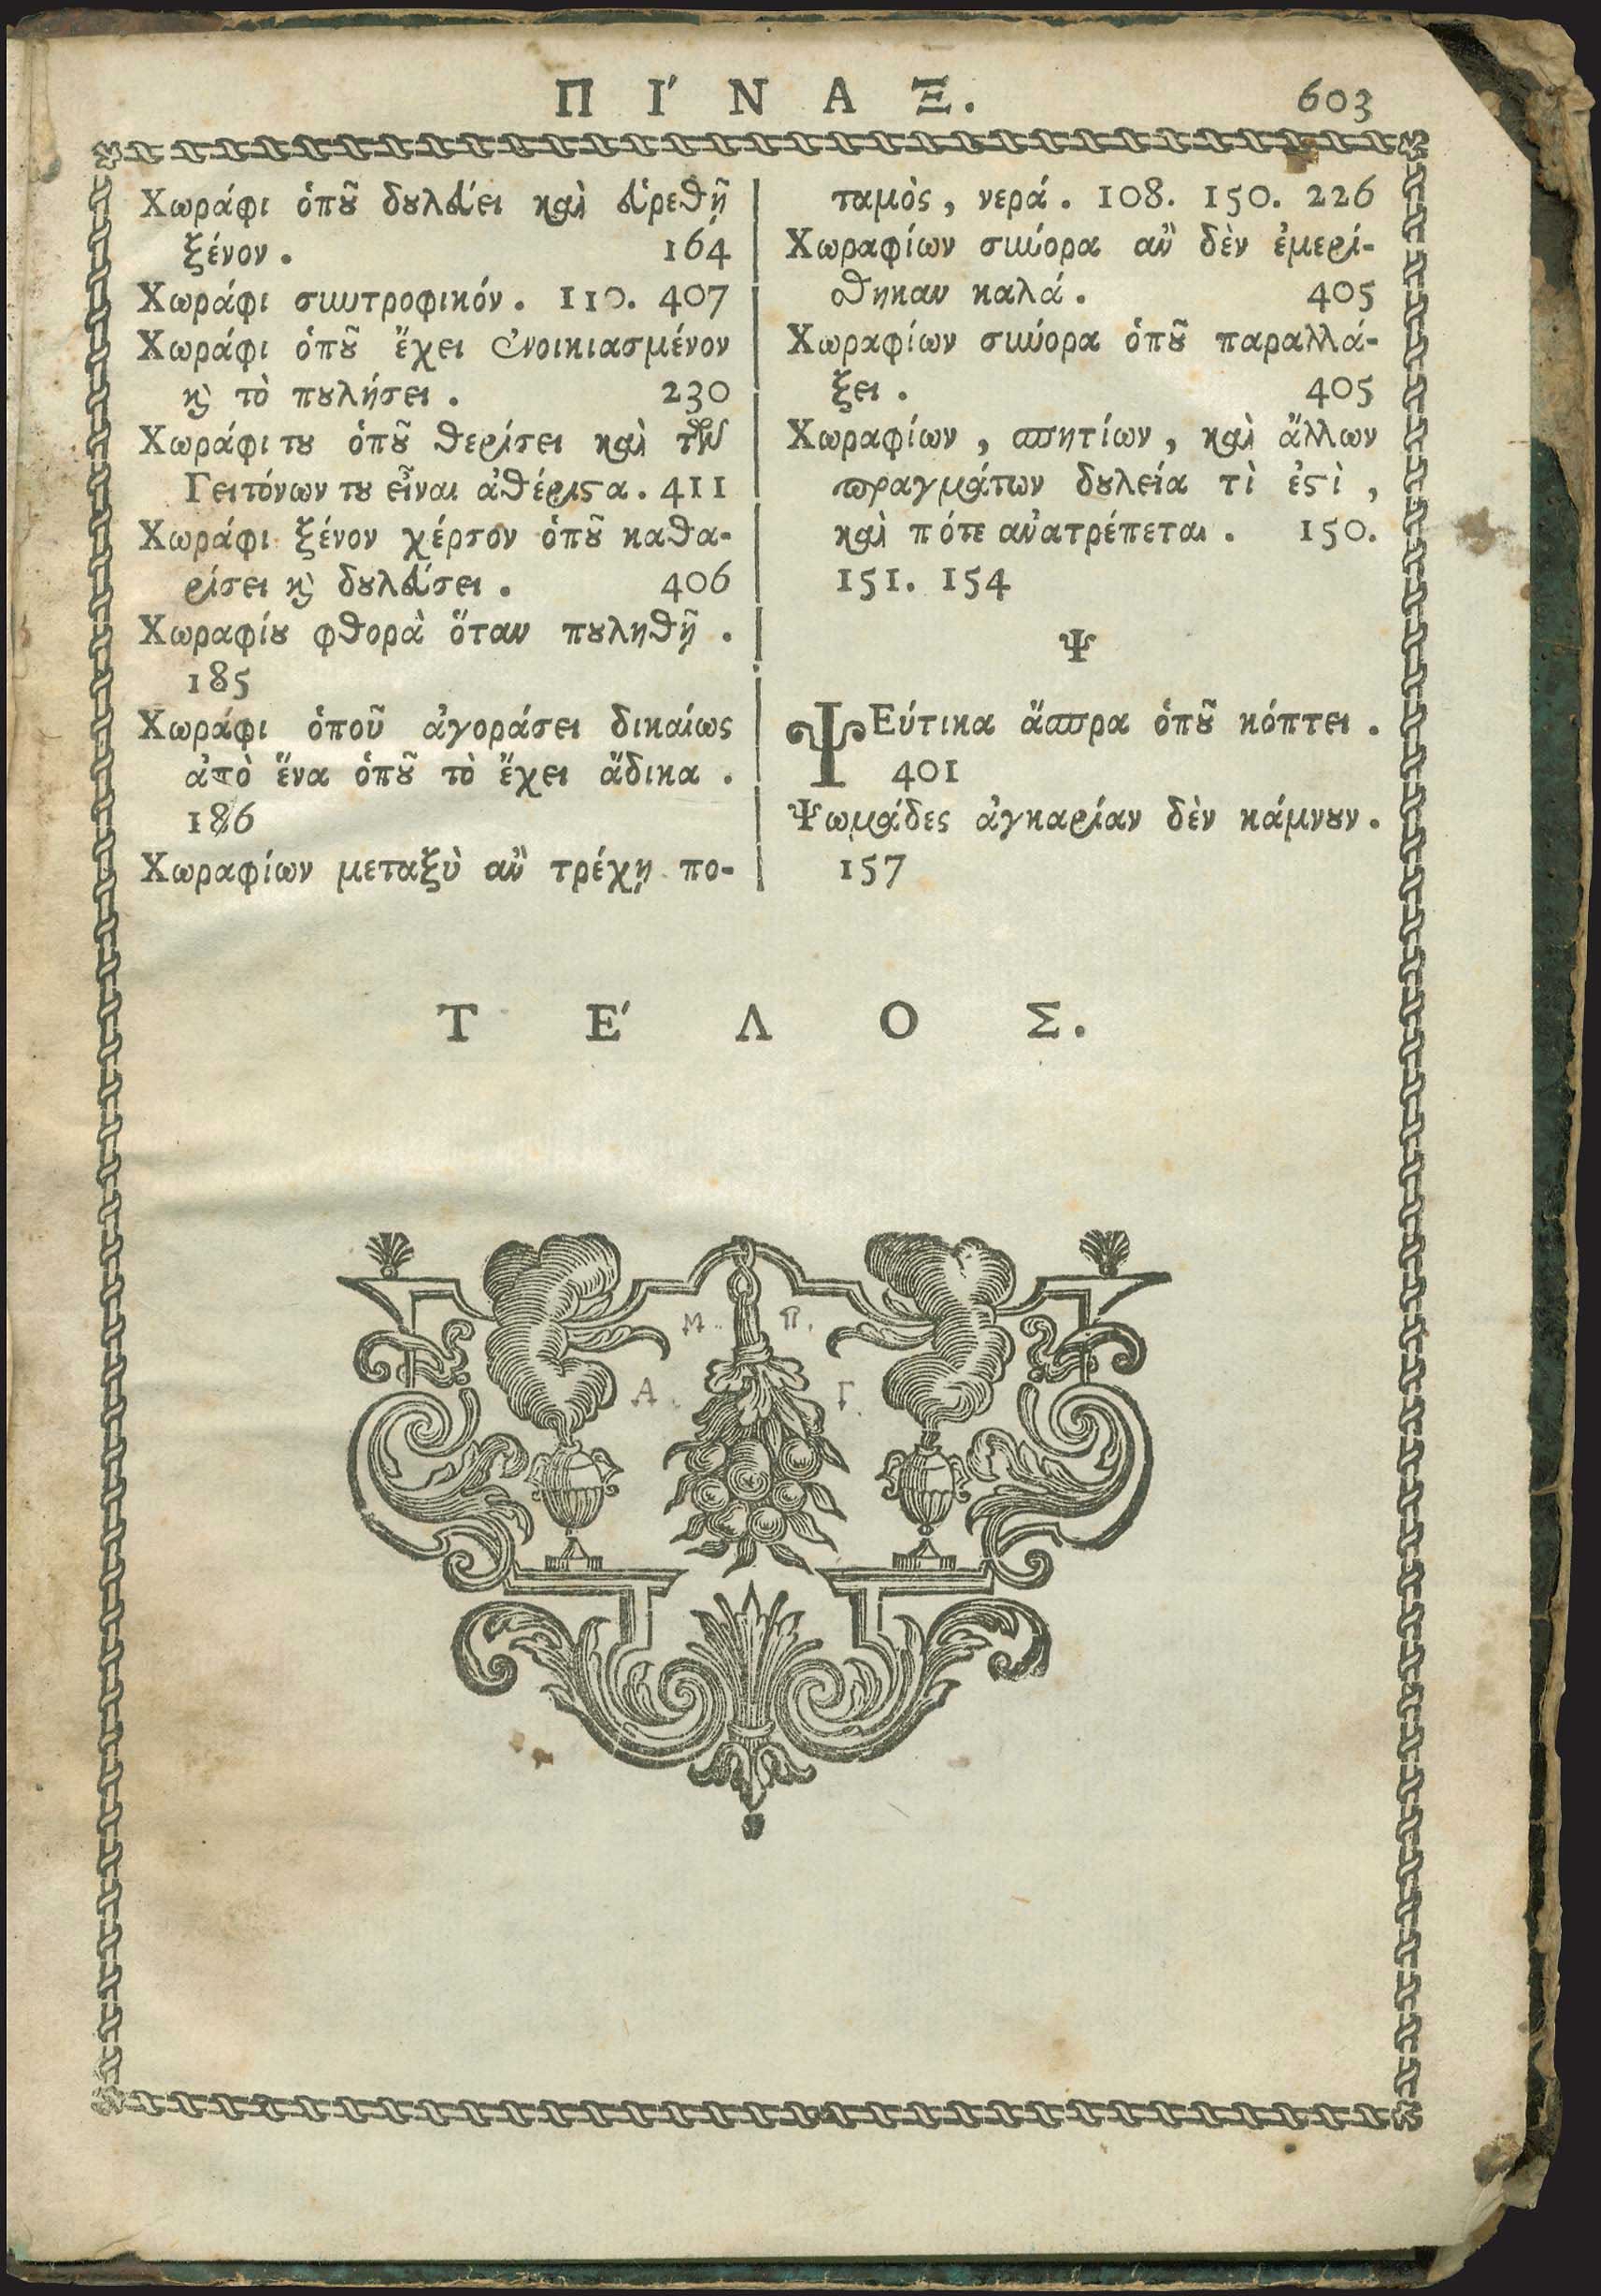 ΠΙ΄ΝΑΞ. 603
Χωράφι ὁποῦ δουλεύει καὶ εὑρεθῇ
ξένον. 164
Χωράφι συντροφικόν. 110. 407
Χωράφι ὁποῦ ἔχει ἐνοικιασμένον
ϗ τὸ πουλήσει. 230
Χωράφι του ὁποῦ θερίσει καὶ τῶν
Γειτόνων του εἶναι ἀθέριςα. 411
Χωράφι ξένον χέρσον ὁποῦ καθα-
ρίσει ϗ δουλεύσει. 406
Χωραφίου φθορὰ ὅταν πουληθῇ.
185
Χωράφι ὁποῦ ἀγοράσει δικαίως
ἀπὸ ἕνα ὁποῦ τὸ ἔχει ἄδικα.
186
Χωραφίων μεταξὺ ἂν τρέχῃ πο-
ταμὸς, νερά. 108. 150. 226
Χωραφίων σύνορα ἂν δὲν ἐμερί-
σθηκαν καλά. 405
Χωραφίων σύνορα ὁποῦ παραλλά-
ξει. 405
Χωραφίων, σπητίων, καὶ ἄλλων
πραγμάτων δουλεία τὶ ἐςὶ,
καὶ πότε ἀνατρέπεται. 150.
151. 154
Ψ
ΨΕύτικα ἄσπρα ὁποῦ κόπτει.
401
Ψωμάδες ἀγκαρίαν δὲν κάμνουν.
157
ΤΕ΄ΛΟΣ.
Μ. Π.
Α. Γ.